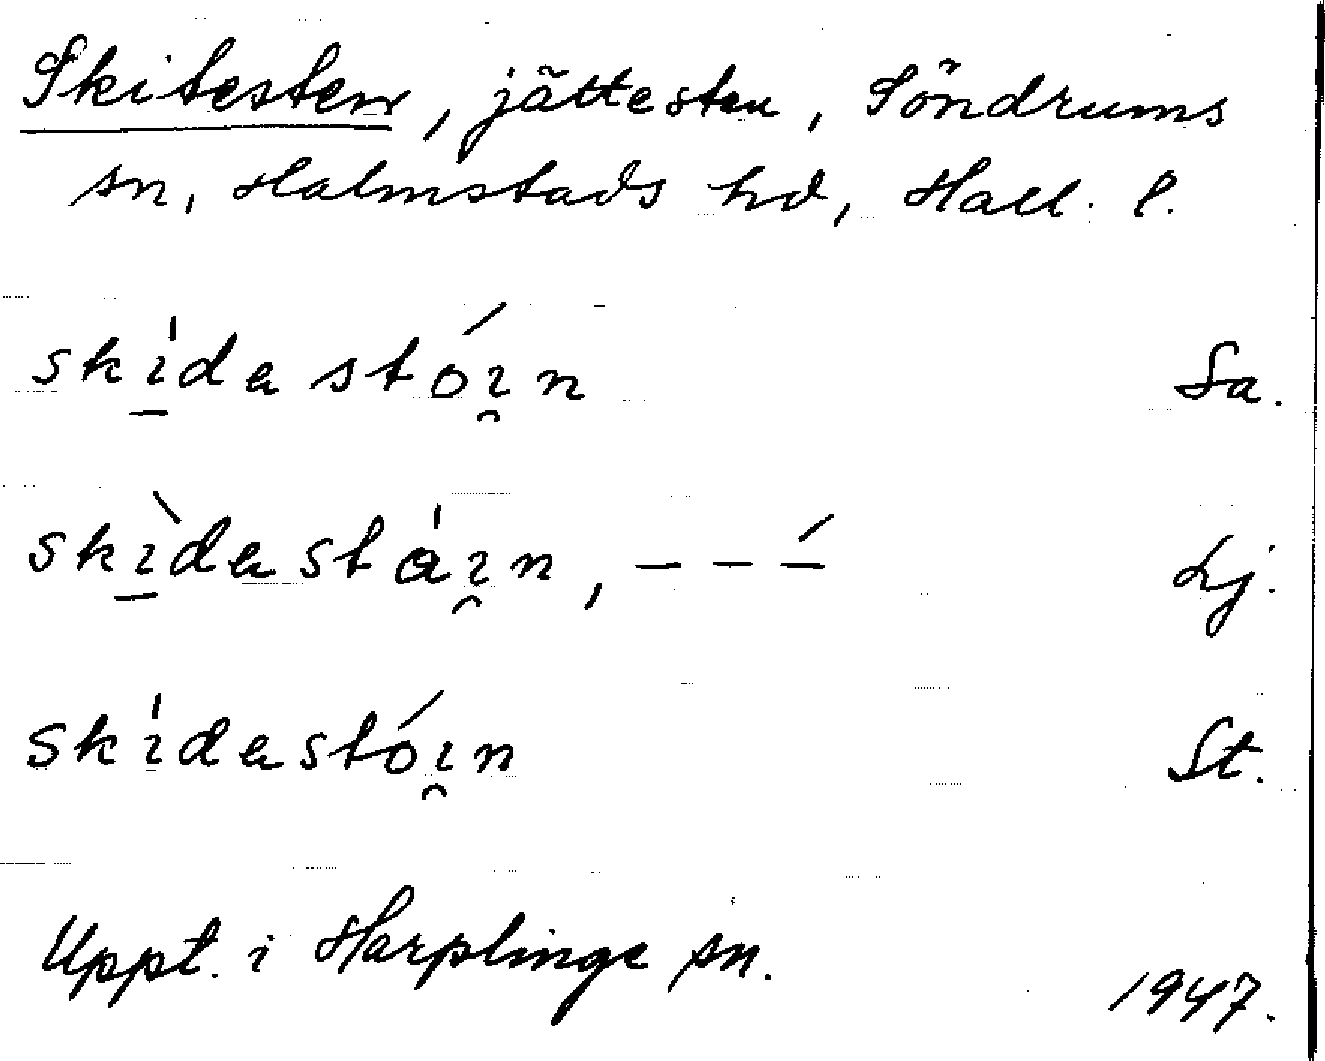 Skitesten, jättesten, Söndrums
sn, Halmstads hd, Hall. l.
skı̱́da stóı̯n Sa.
skı̱̀dastáı̯n, – – –́ Lj.
skı̱́dastóı̯n St.
Uppt. i Harplinge sn.
1947.